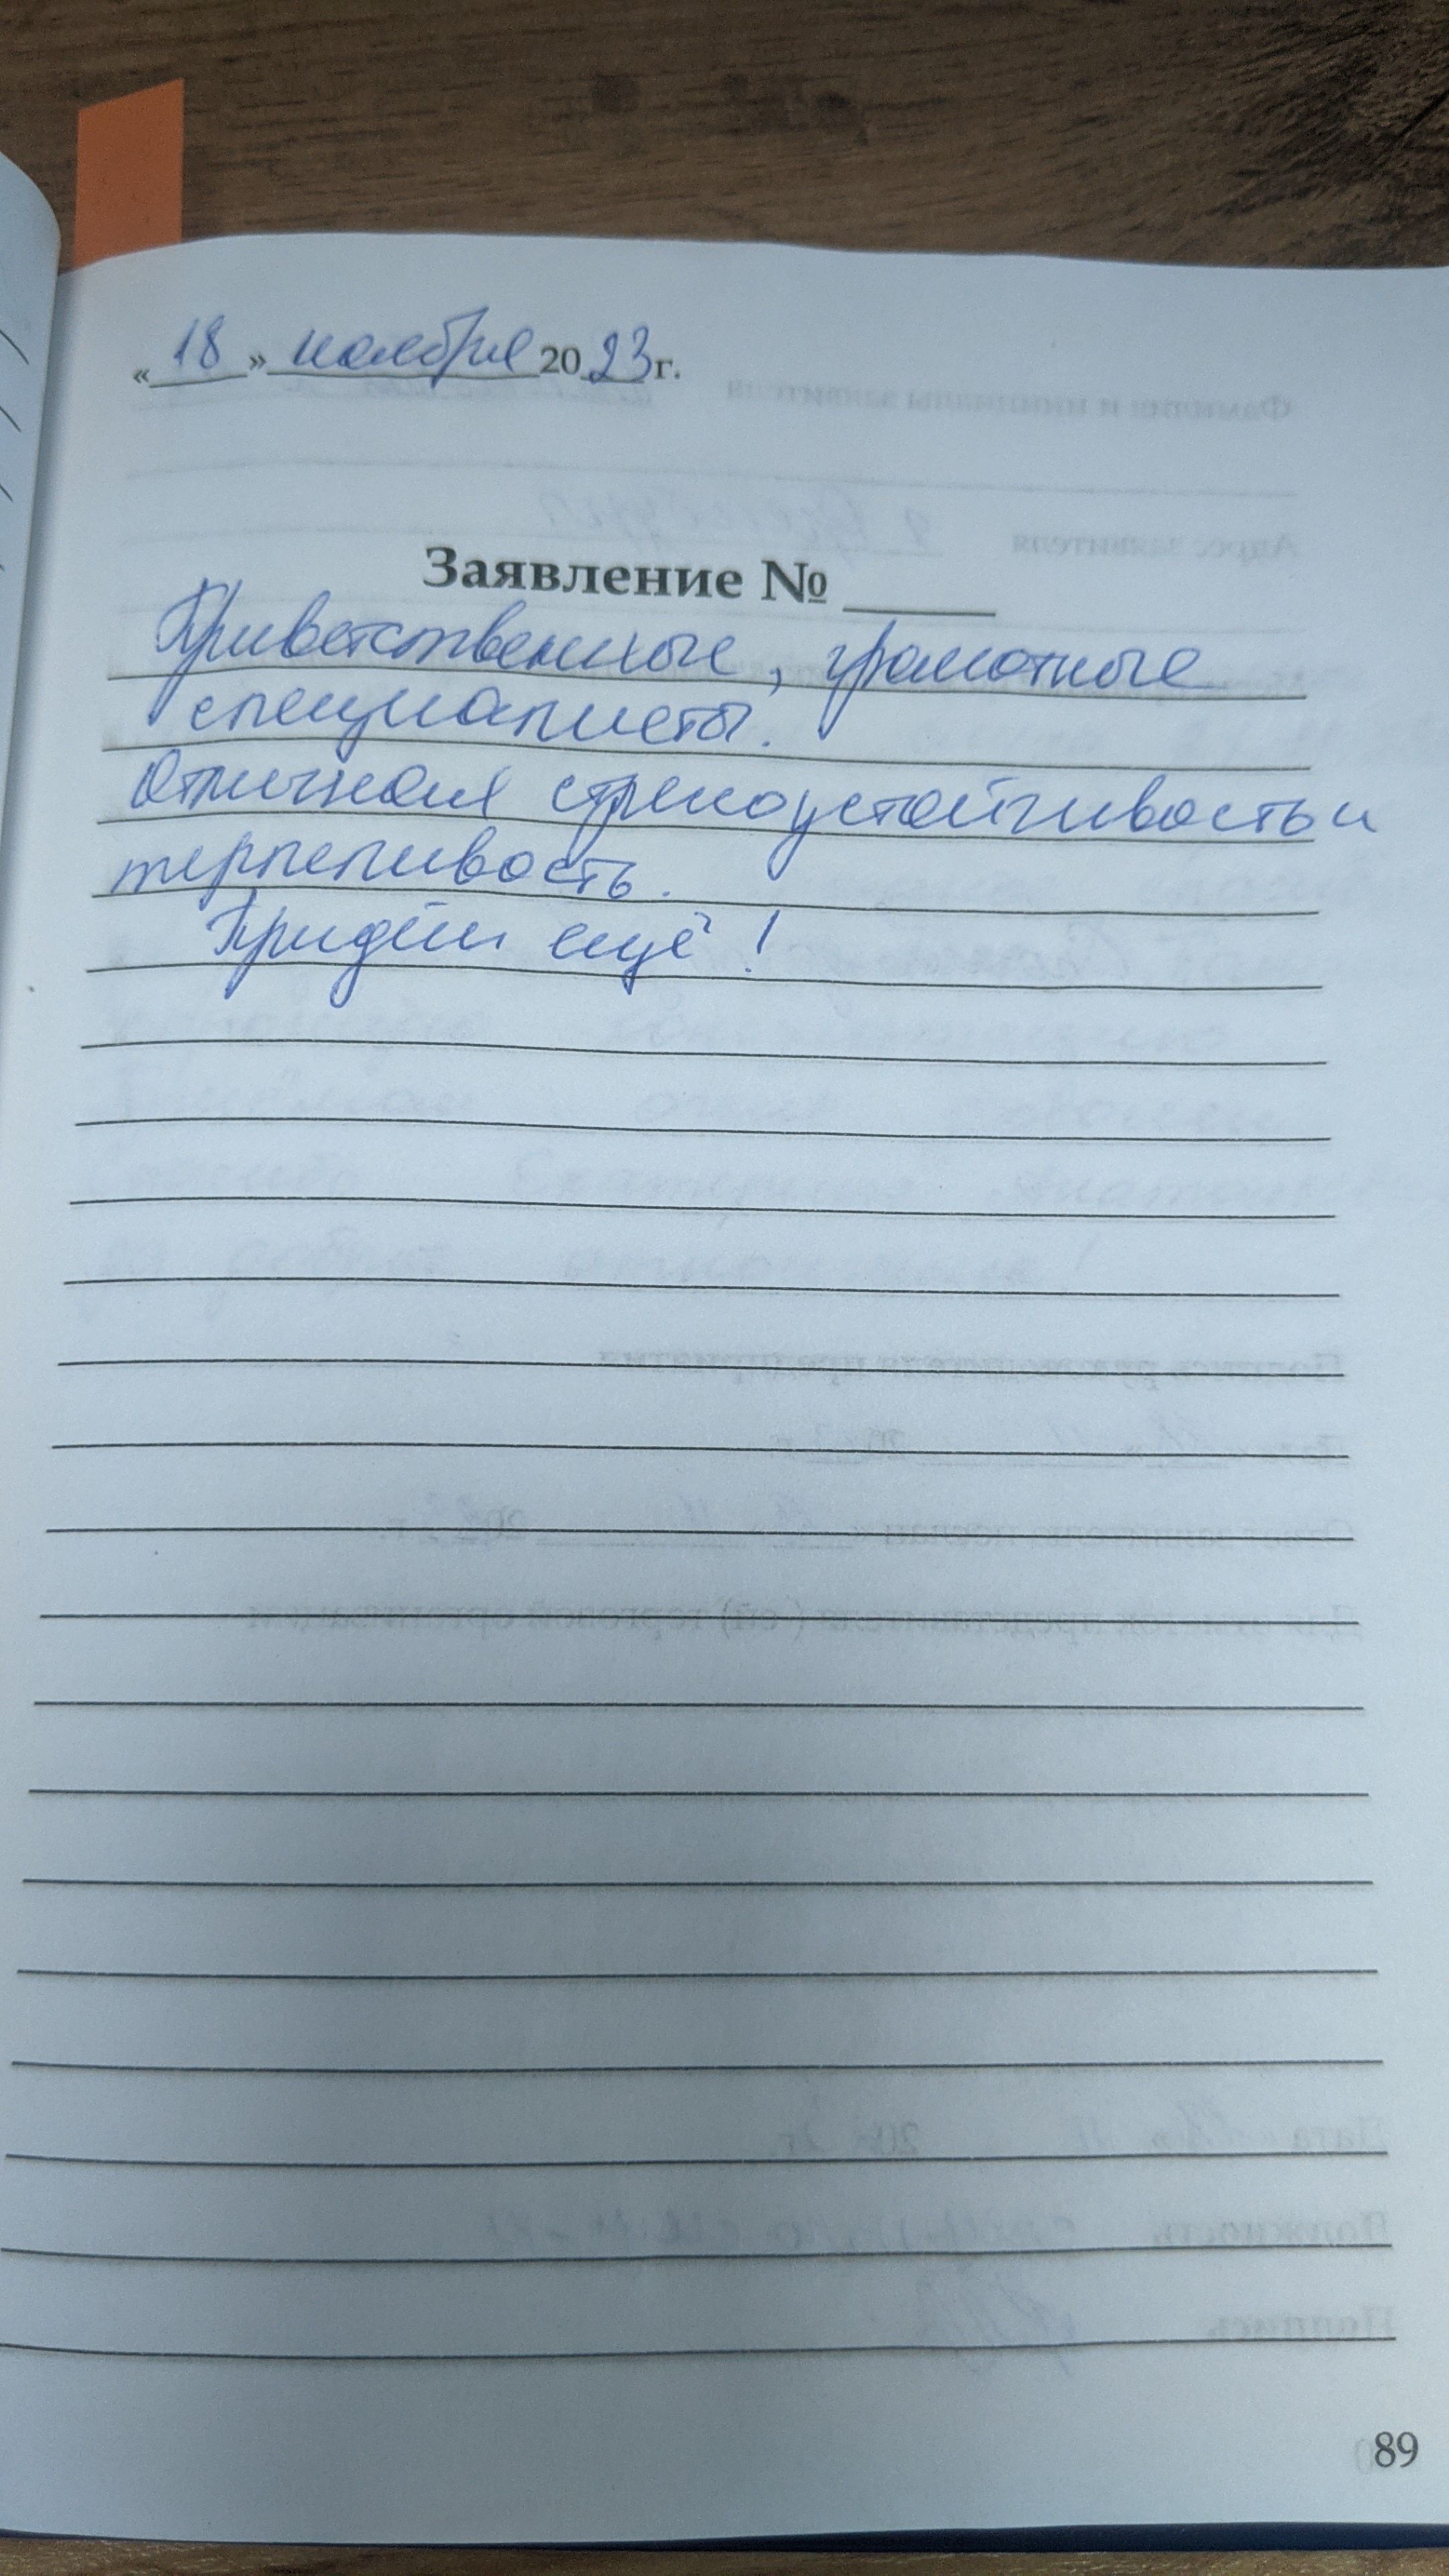 «18» ноября 2023г.
Заявление № ____
Приветственные, грамотные
специалисты.
Отличная стрессоустойчивость и
терпеливость.
Придём ещё!
89